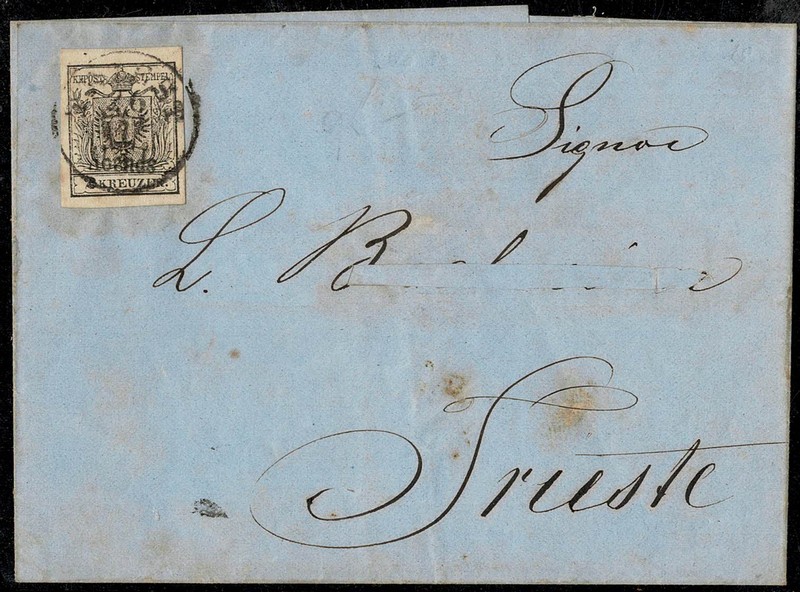 K K POST-STEMPEL
KREUZER.
Signor
L. B
Trieste